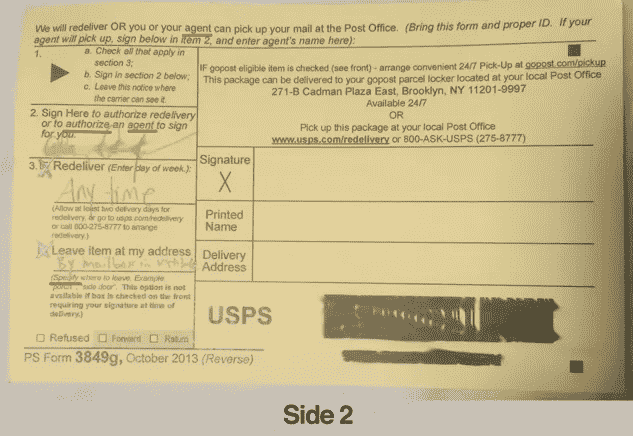 We will redeliver OR you or your agent can pick up your mail at the Post Office. (Bring this form and proper ID. If your
agent will pick up, sign below in Item 2, and enter agent's name here):
1.
a. Check all that apply in
section 3;
b. Sign in section 2 below;
c. Leave this notice where
the carrier can see it.
2. Sign Here to authorize redelivery
or to authorize an agent to sign
for you:
3. Redeliver (Enter day of week.):
Any time
(Allow at least two delivery days for
redelivery, or go to usps.com/redelivery
or call 800-275-8777 to arrange
redelivery.)
Leave item at my address
By mailbox in
(Specify where to leave. Example
"porch", "side door". This option is not
available if box is checked on the front
requiring your signature at time of
delivery.)
Refused Forward Return
PS Form 3849g, October 2013 (Reverse)
IF gopost eligible item is checked (see front) - arrange convenient 24/7 Pick-Up at gopost.com/pickup
This package can be delivered to your gopost parcel locker located at your local Post Office
271-B Cadman Plaza East, Brooklyn, NY 11201-9997
Available 24/7
OR
Pick up this package at your local Post Office
www.usps.com/redelivery or 800-ASK-USPS (275-8777)
Signature
X
Printed
Name
Delivery
Address
USPS
Side 2